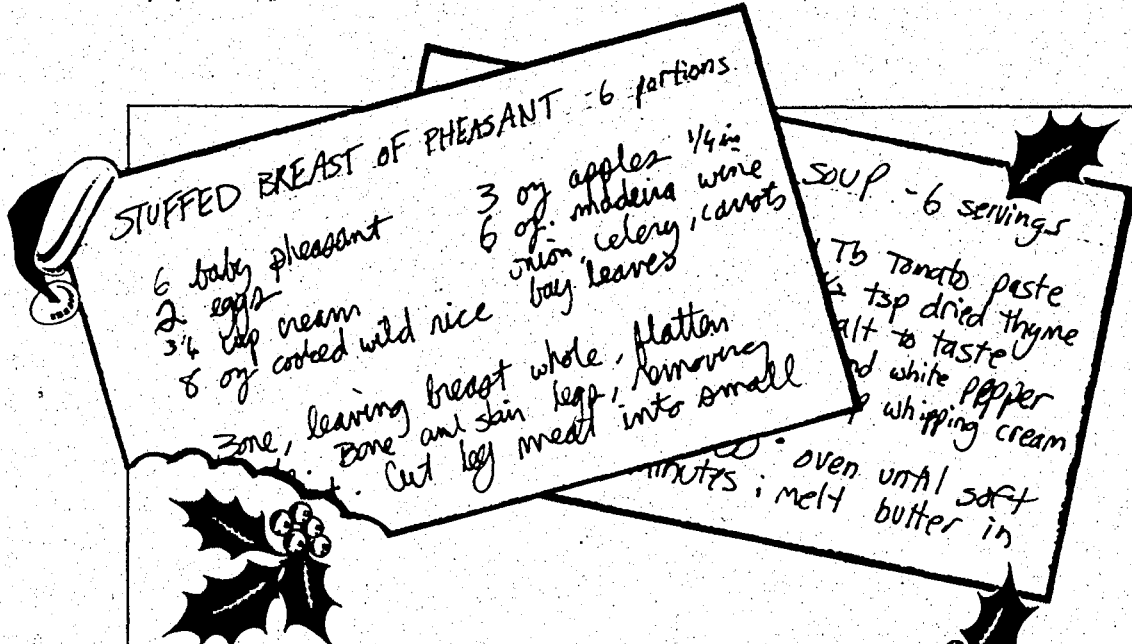 STUFFED BREAST OF PHEASANT - 6 portions
6 baby pheasant
2 eggs
3/4 cup cream
8 oz cooked wild rice
3 oz apples 1/4 in
6 oz. madeira wine
onion, celery, carrots
bay leaves
Bone, leaving breast whole, flatten
Bone and skin legs, removing
Cut leg meat into small
SOUP - 6 servings
Tb Tomato paste
1/2 tsp dried thyme
alt to taste
nd white pepper
whipping cream
oven until soft
minutes; melt butter in